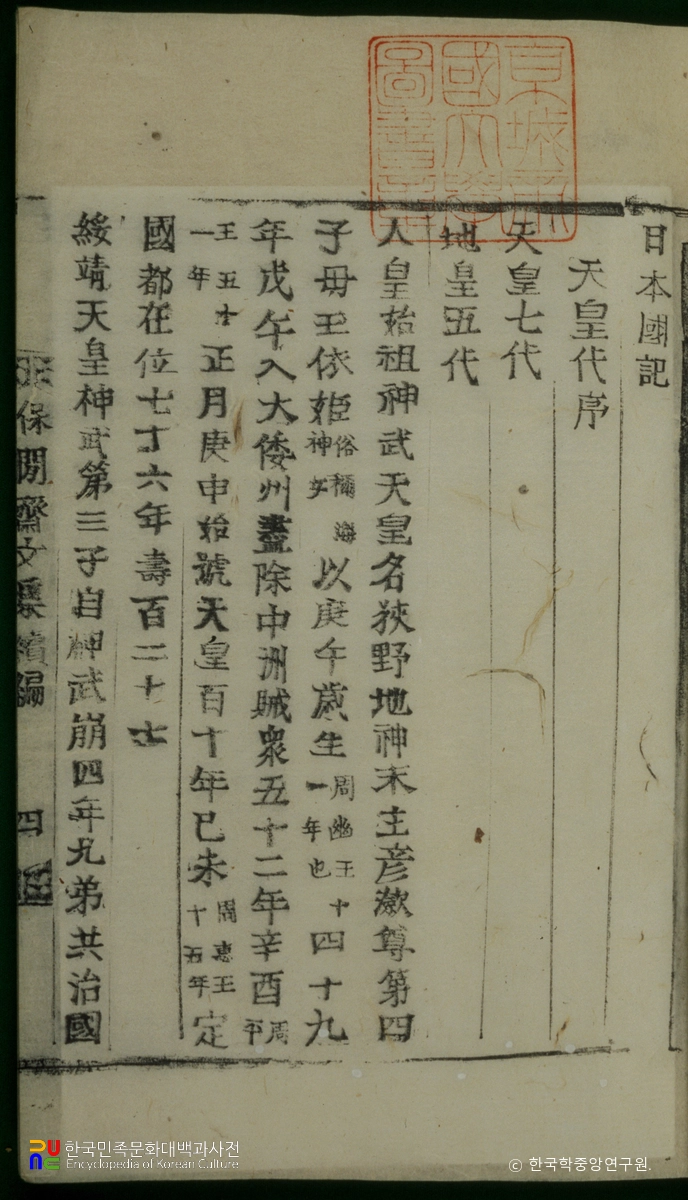 日本國記
天皇代序
天皇七代
地皇五代
人皇始祖神武天皇名狹野地神末主彦瀲尊第四
子母王依姫俗稱海神女以庚午歲生周幽王十一年也四十九
年戊午入大倭州盡除中洲賊衆五十二年辛酉周平
王五十一年正月庚申始號天皇百十年己未周惠王十五年定
國都在位七十六年壽百二十七
綏靖天皇神武第三子自神武崩四年兄弟共治國
保閒齋文集續編
四
京城帝
國大學
圖書章
한국민족문화대백과사전
Encyclopedia of Korean Culture
© 한국학중앙연구원.